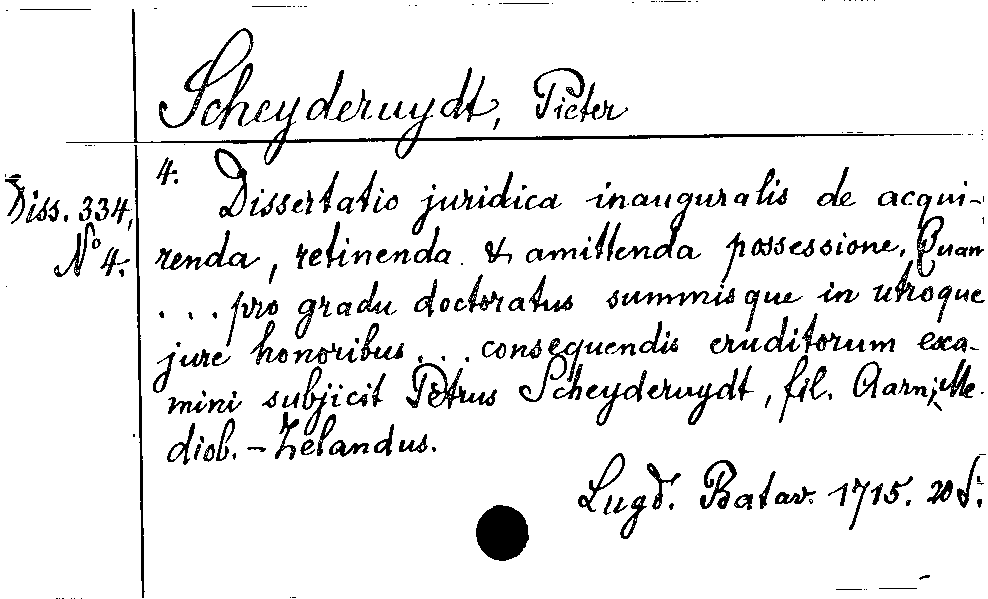 Scheyderuydt, Pieter
4.
Diss. 334,
No 4.
Dissertatio juridica inauguralis de acqui-
renda, retinenda & amittenda possessione. Quam
... pro gradu doctoratus summisque in utroque
jure honoribus ... consequendis eruditorum exa-
mini subjicit Petrus Scheyderuydt, fil. Aarn; Me-
diob. - Zelandus.
Lugd. Batav. 1715. 20 S.